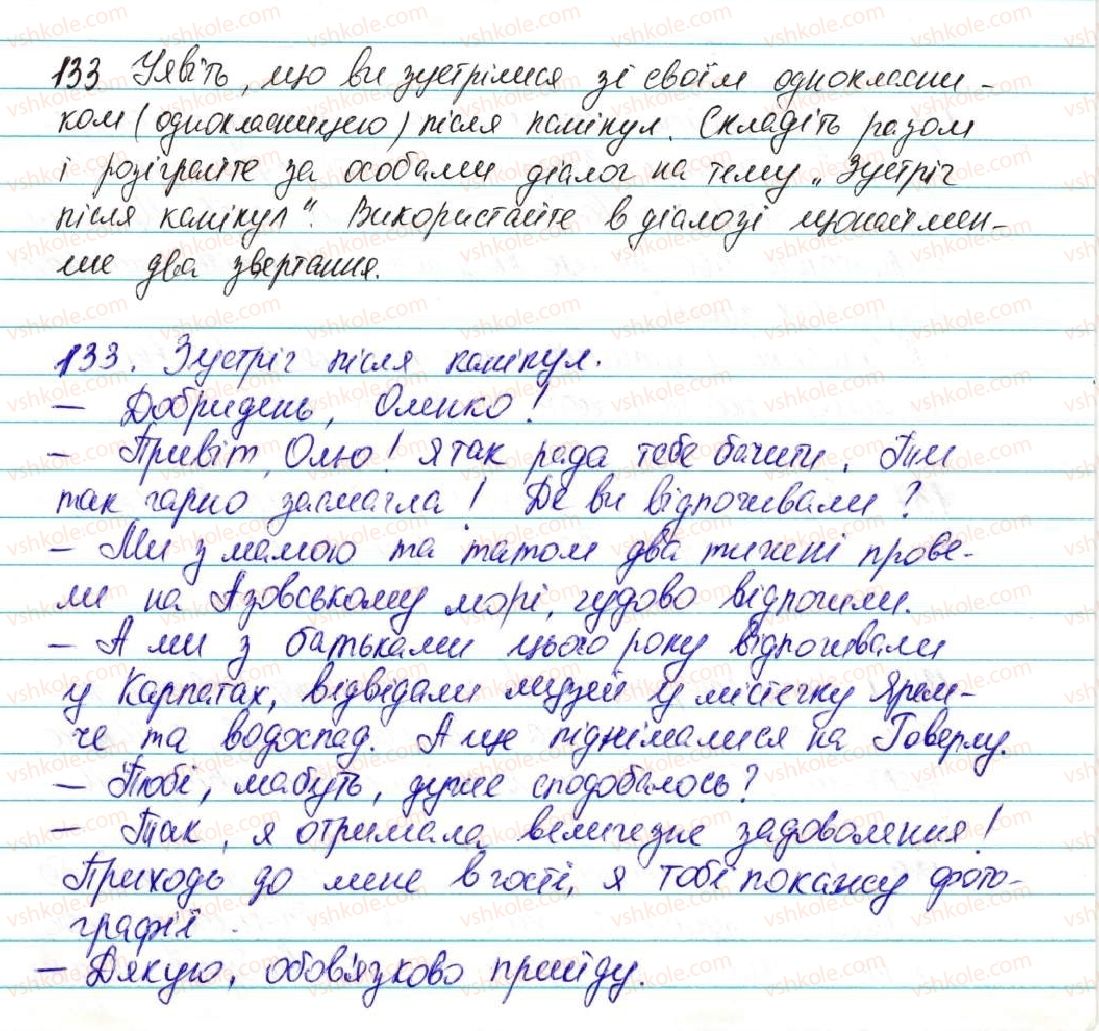 133. Уявіть, що ви зустрілися зі своїм однокласни-
ком (однокласницею) після канікул. Складіть разом
і розіграйте за особами діалог на тему „Зустріч
після канікул". Використайте в діалозі щонаймен-
ше два звертання.
133. Зустріч після канікул.
– Добридень, Оленко!
– Привіт, Олю! Я так рада тебе бачити. Ти
так гарно засмагла! Де ви відпочивали?
– Ми з мамою та татом два тижні прове-
ли на Азовському морі, чудово відпочили.
– А ми з батьками цього року відпочивали
у Карпатах, відвідали музей у містечку Ярем-
че та водоспад. А ще піднімалися на Говерлу.
– Тобі, мабуть, дуже сподобалось?
– Так, я отримала величезне задоволення!
Приходь до мене в гості, я тобі покажу фото-
графії.
– Дякую, обов'язково прийду.